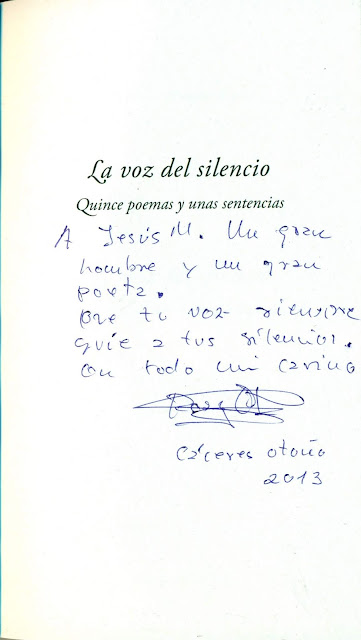 La voz del silencio
Quince poemas y unas sentencias
A Jesús M. Un gran
hombre y un gran
poeta.
Que tu voz siempre
guíe a tus silencios.
Con todo mi cariño
Cáceres otoño
2013